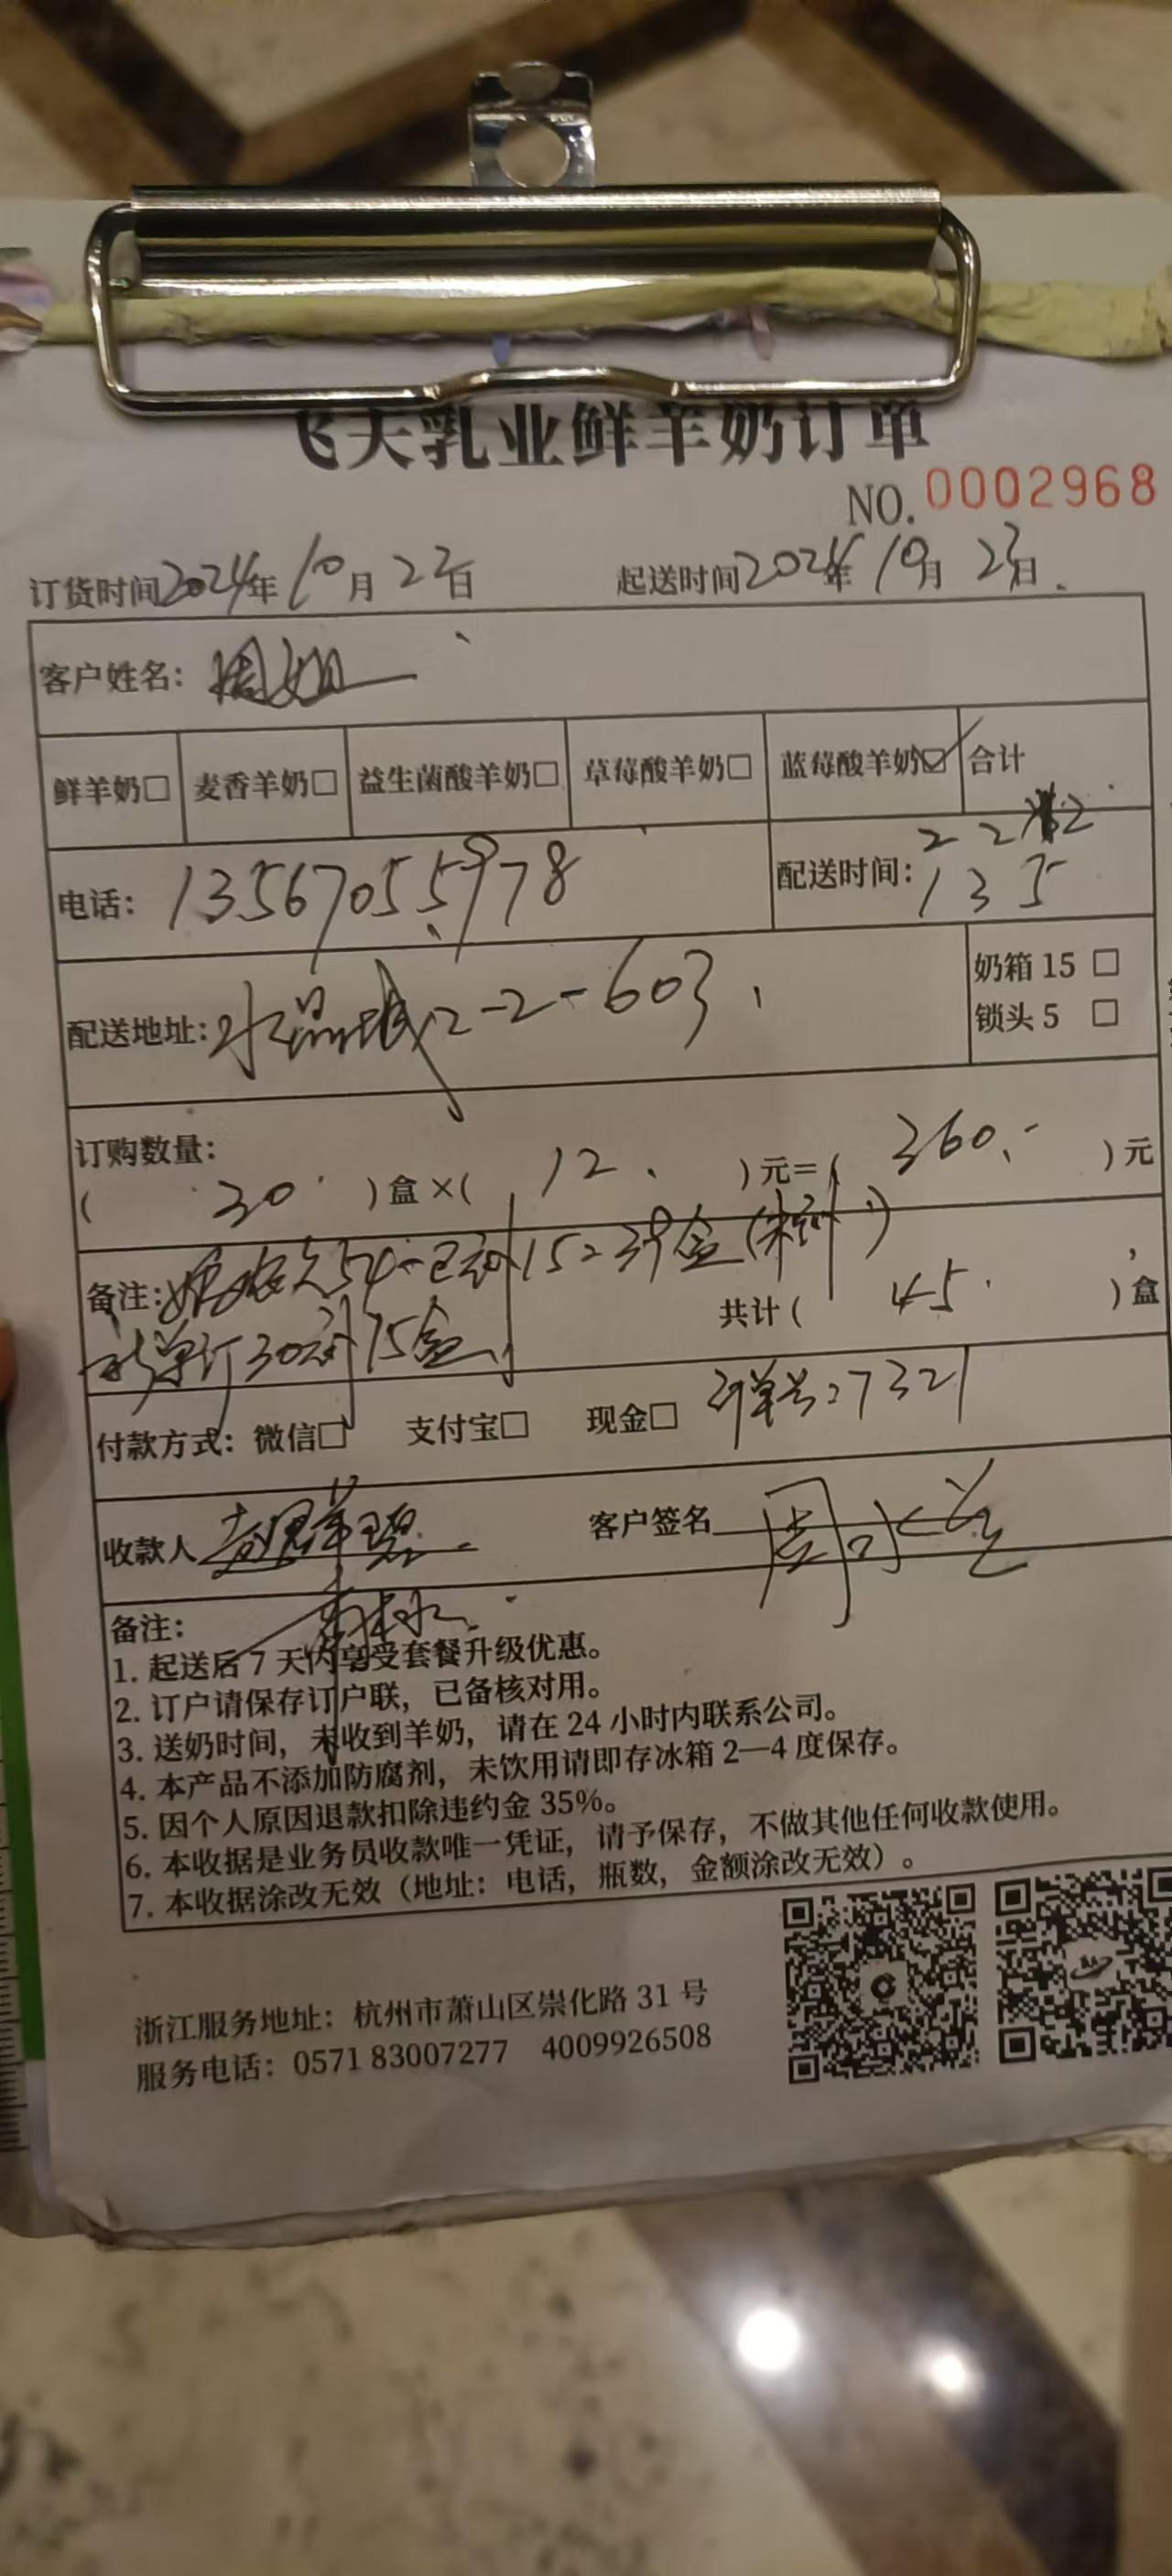 飞天乳业鲜羊奶订单
NO. 0002968
订货时间2024年10月22日 起送时间2024年10月23日
客户姓名：周姐
鲜羊奶□ 麦香羊奶□ 益生菌酸羊奶□ 草莓酸羊奶□ 蓝莓酸羊奶☑ 合计
电话：13567055978 配送时间：2 2 2
1 3 5
配送地址：水晶城2-2-603 奶箱 15 □
锁头 5 □
订购数量：
（ 30 ）盒 ×（ 12 ）元 =（ 360 ）元
备注：54 15=39盒
新单订30 15盒 共计（ 45 ）盒
付款方式：微信□ 支付宝□ 现金□ 单号:7321
收款人 客户签名 周水
备注：
1. 起送后 7 天内享受套餐升级优惠。
2. 订户请保存订户联，已备核对用。
3. 送奶时间，未收到羊奶，请在 24 小时内联系公司。
4. 本产品不添加防腐剂，未饮用请即存冰箱 2—4 度保存。
5. 因个人原因退款扣除违约金 35%。
6. 本收据是业务员收款唯一凭证，请予保存，不做其他任何收款使用。
7. 本收据涂改无效（地址：电话，瓶数，金额涂改无效）。
浙江服务地址：杭州市萧山区崇化路 31 号
服务电话：0571 83007277 4009926508